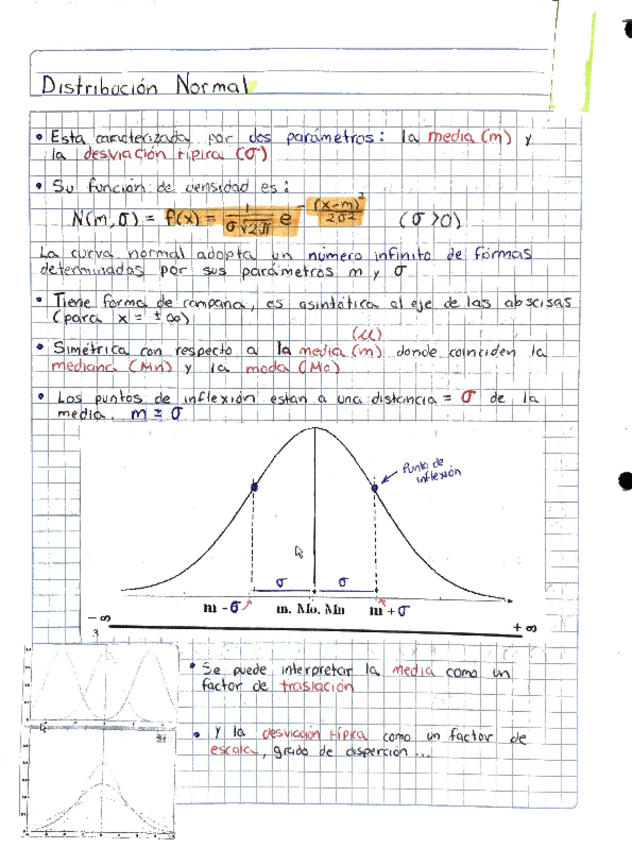 Distribución Normal
• Esta caracterizada por dos parámetros: la media (m) y
la desviación típica (σ)
• Su función de densidad es:
N(m,σ) = f(x) = 1/(σ√2π) e^-(x-m)²/2σ² (σ>0)
La curva normal adopta un número infinito de formas
determinadas por sus parámetros m y σ
• Tiene forma de campana, es asintótica al eje de las abscisas
(para x = ±∞)
(μ)
• Simétrica con respecto a la media (m) donde coinciden la
mediana (Mn) y la moda (Mo)
• Los puntos de inflexión estan a una distancia = σ de la
media. m ± σ
Punto de
inflexión
σ σ
m - σ m, Mo, Mn m + σ
- ∞ + ∞
3
• Se puede interpretar la media como un
factor de traslación
• y la desviación típica como un factor de
escala, grado de disperción...